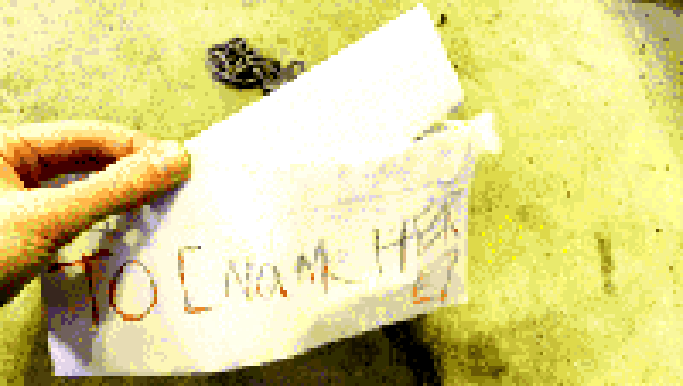 TO [Name HER
E]